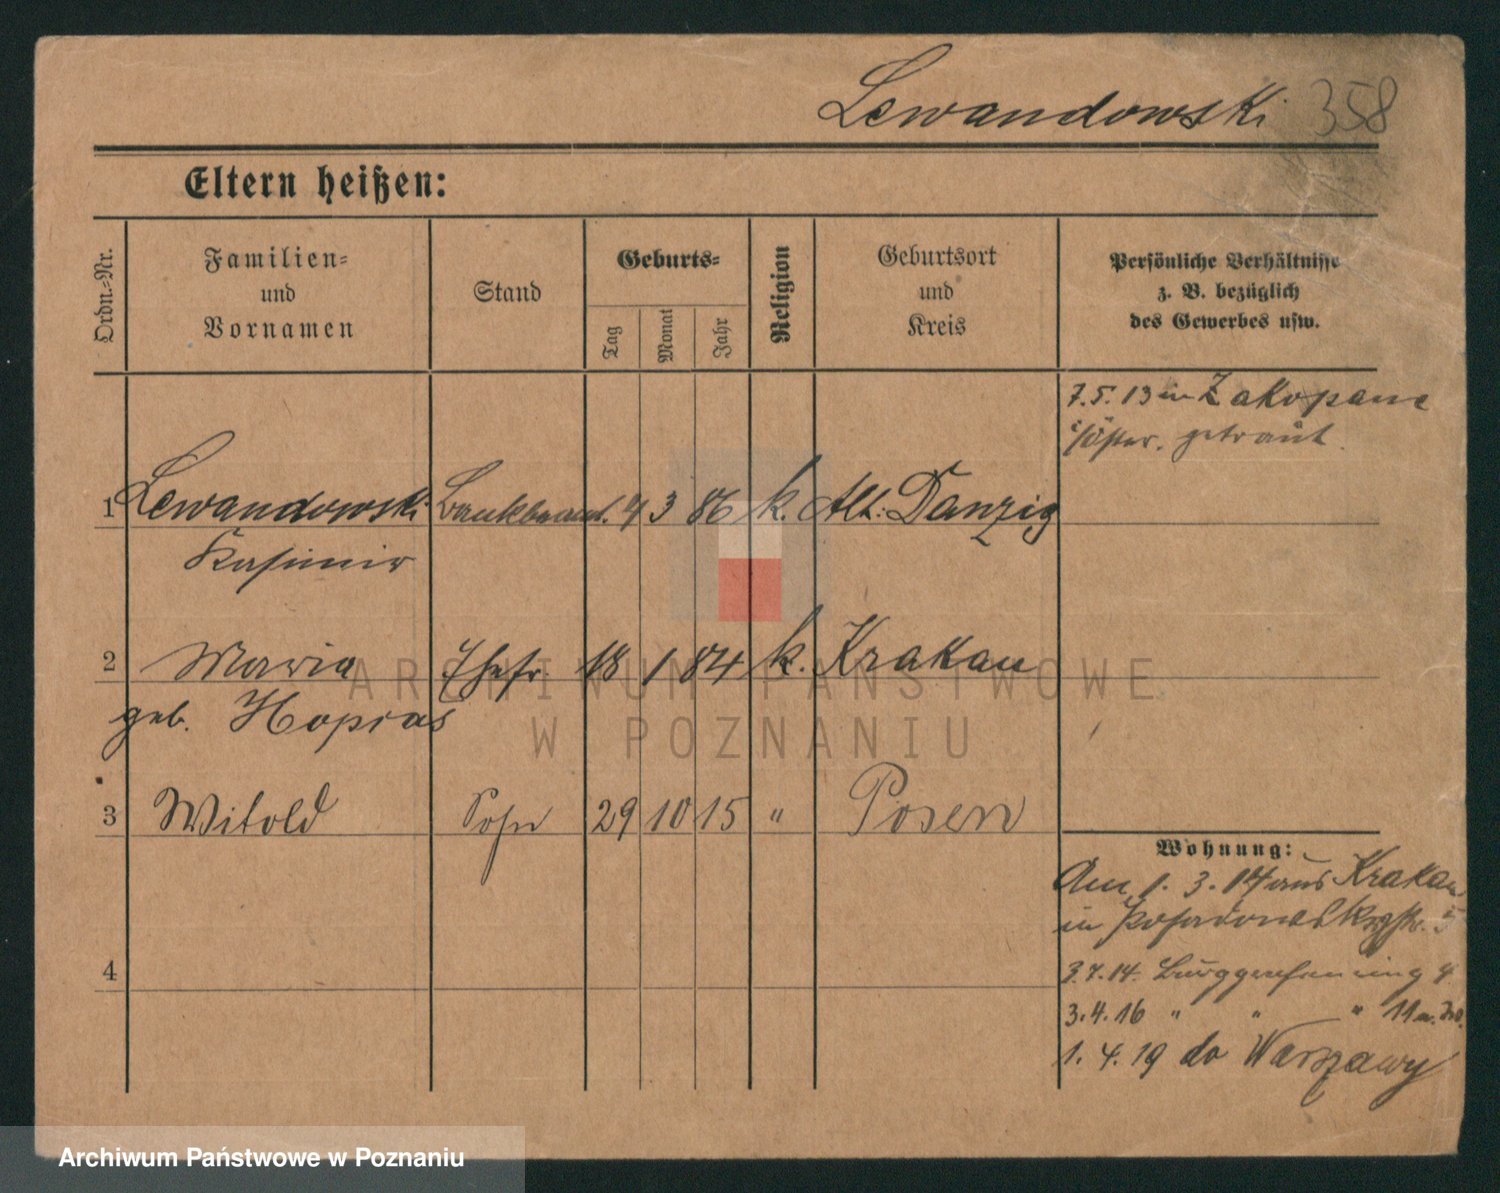 Lewandowski 358
Eltern heißen:
Ordn.-Nr.
Familien-
und
Vornamen
Stand
Geburts-
Tag
Monat
Jahr
Religion
Geburtsort
und
Kreis
Persönliche Verhältnisse
z. B. bezüglich
des Gewerbes usw.
7.5.13 in Zakopane
i/Öster. getraut.
1 Lewandowski Bankbeamt. 4 3 86 k. Alt: Danzig
Kasimir
2 Maria Ehefr. 18 1 84 k. Krakau
geb.
ARCHIWUM PAŃSTWOWE
W POZNANIU
3 Witold Sohn 29 10 15 " Posen
Wohnung:
Am 1. 3. 14 aus Krakau
in 5
4
3.4.14. 4
3.4.16 " " " 11
1. 4. 19 do Warszawy
Archiwum Państwowe w Poznaniu